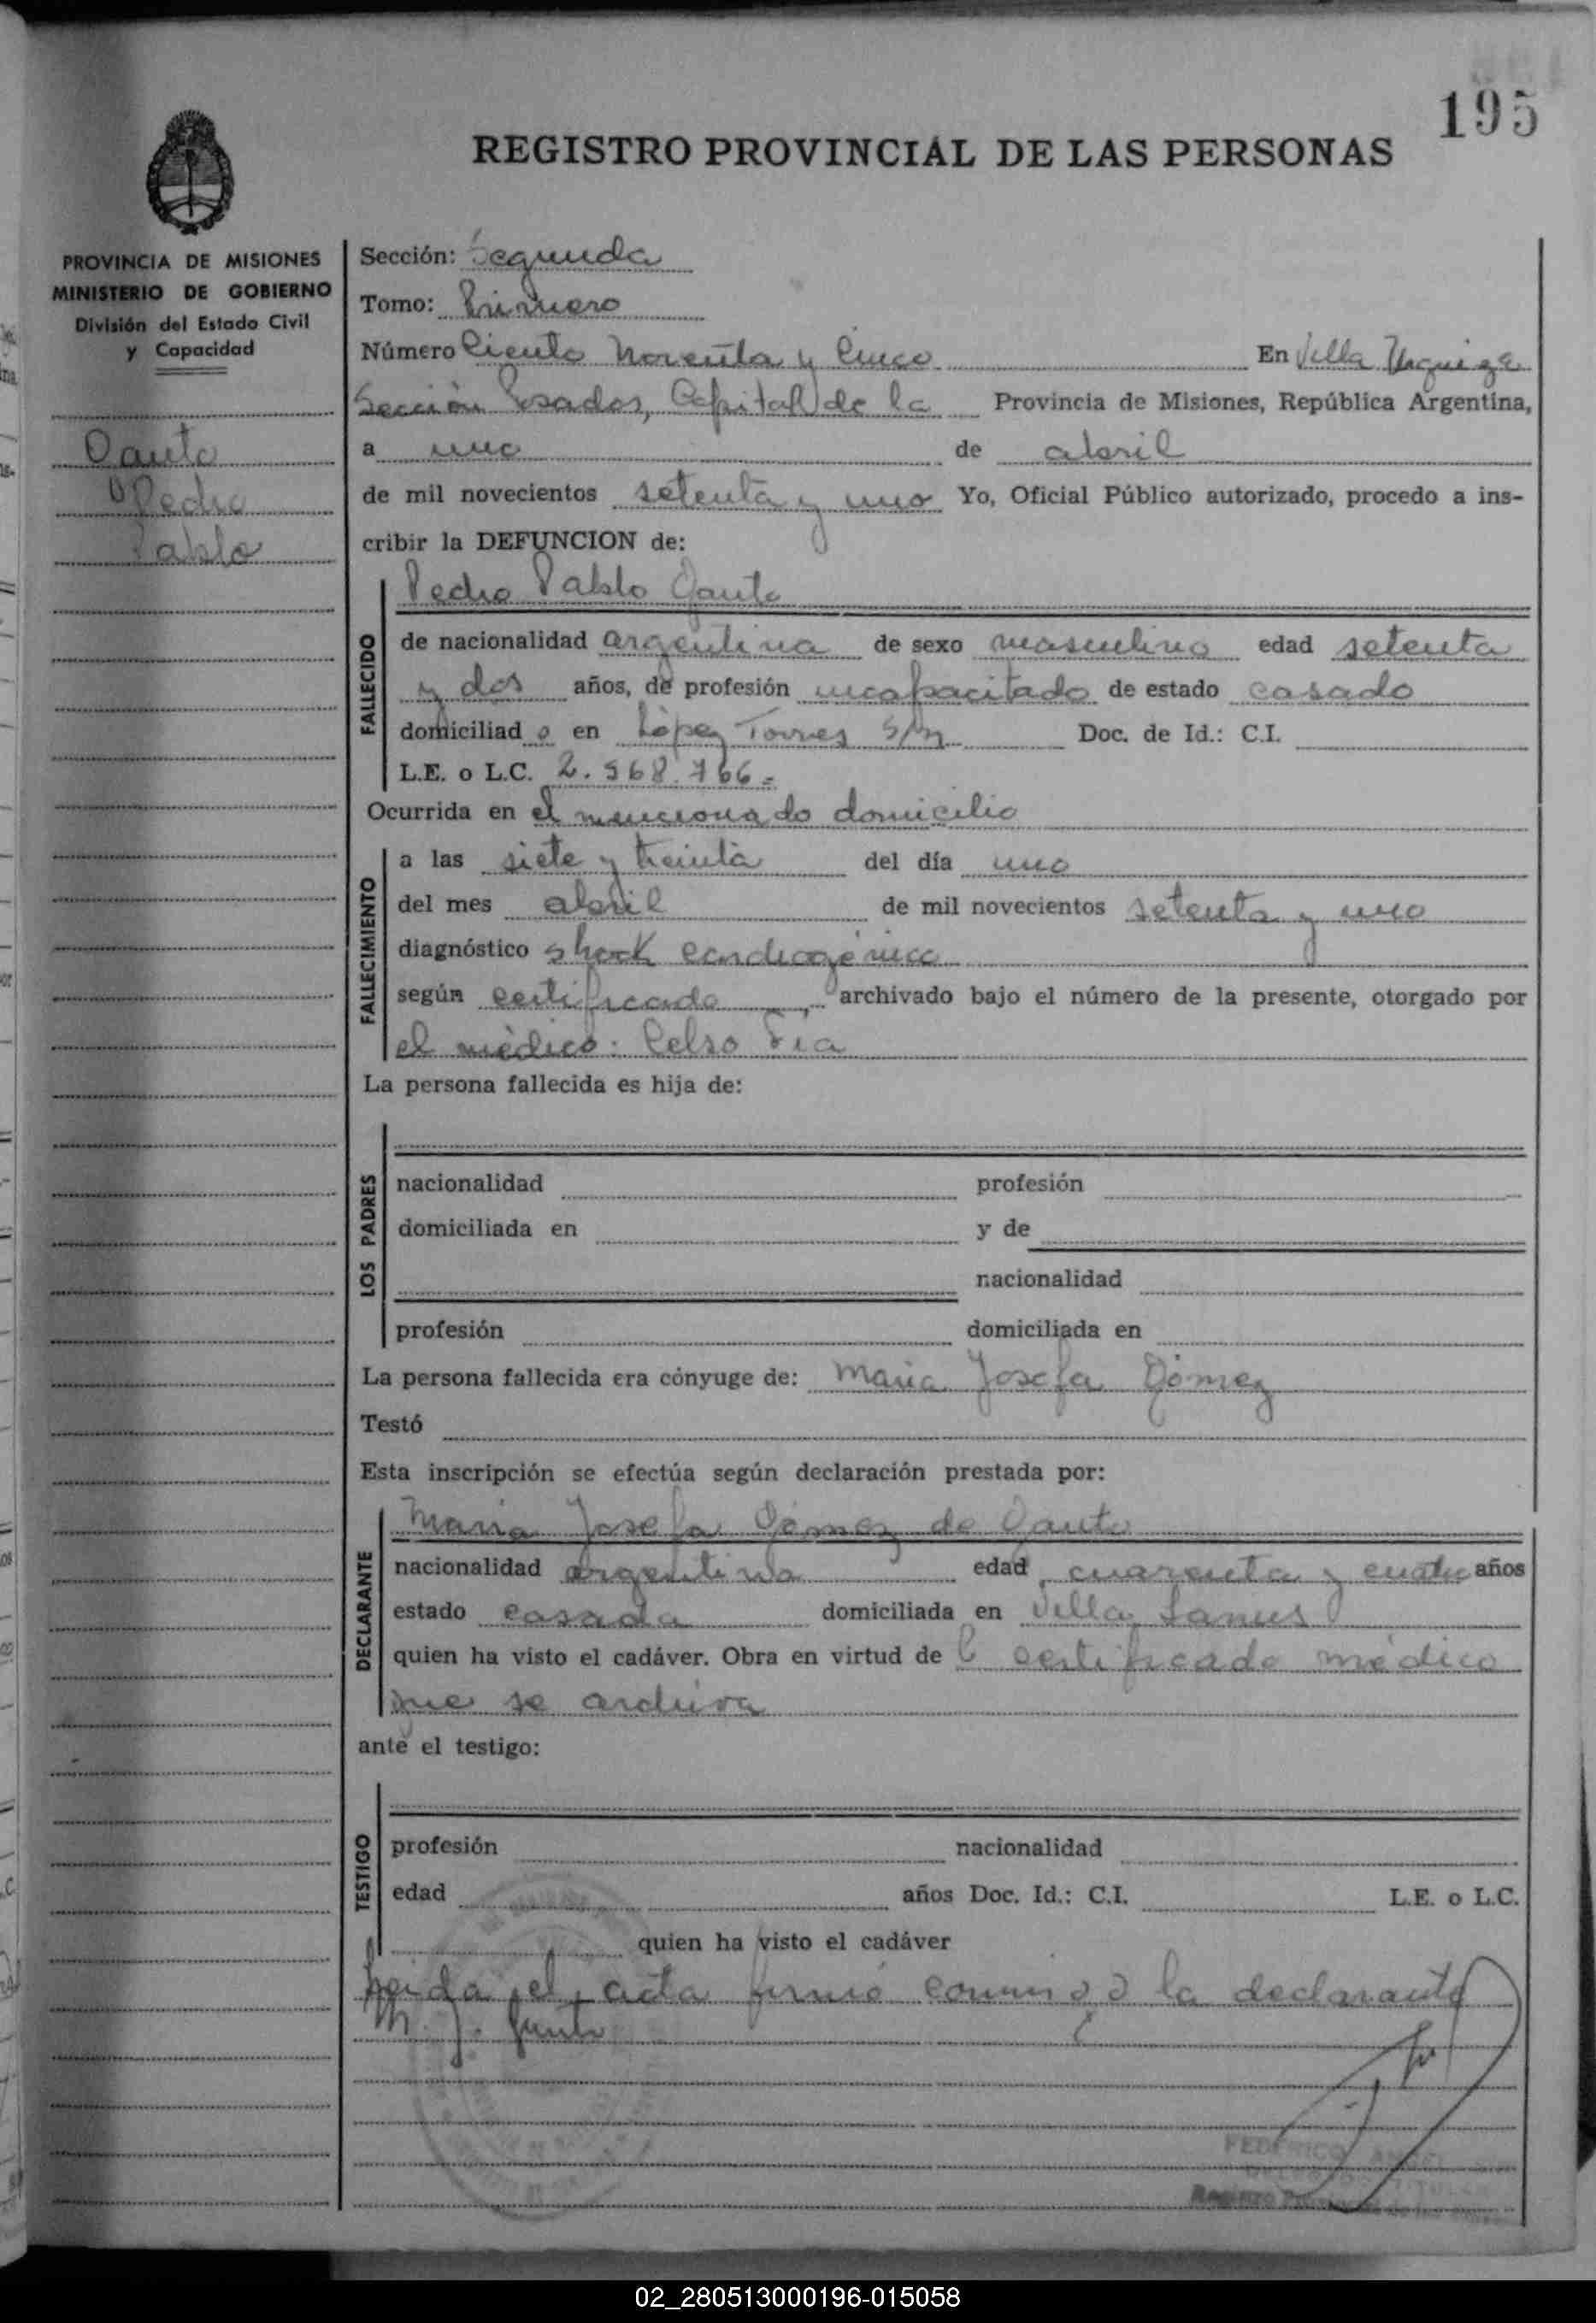 195
REGISTRO PROVINCIAL DE LAS PERSONAS
PROVINCIA DE MISIONES
MINISTERIO DE GOBIERNO
División del Estado Civil
y Capacidad
Gauto
Pedro
Pablo
Sección: Segunda
Tomo: Primero
Número Ciento Noventa y Cinco En Villa Urquiza
Sección Posadas, Capital de la Provincia de Misiones, República Argentina,
a uno de abril
de mil novecientos setenta y uno Yo, Oficial Público autorizado, procedo a ins-
cribir la DEFUNCION de:
FALLECIDO
Pedro Pablo Gauto
de nacionalidad argentina de sexo masculino edad setenta
y dos años, de profesión incapacitado de estado casado
domiciliad o en López Torres S/n Doc. de Id.: C.I.
L.E. o L.C. 2.568.766.=
Ocurrida en el mencionado domicilio
FALLECIMIENTO
a las siete y treinta del día uno
del mes abril de mil novecientos setenta y uno
diagnóstico shock cardiogénico
según certificado archivado bajo el número de la presente, otorgado por
el médico: Celso
La persona fallecida es hija de:
LOS PADRES
nacionalidad profesión
domiciliada en y de
nacionalidad
profesión domiciliada en
La persona fallecida era cónyuge de: María Josefa Gómez
Testó
Esta inscripción se efectúa según declaración prestada por:
DECLARANTE
María Josefa Gómez de Gauto
nacionalidad argentina edad cuarenta y cuatro años
estado casada domiciliada en Villa Lanus
quien ha visto el cadáver. Obra en virtud de certificado médico
que se archiva
ante el testigo:
TESTIGO
profesión nacionalidad
edad años Doc. Id.: C.I. L.E. o L.C.
quien ha visto el cadáver
Leida el acta firmó conmigo la declarante
M. J.
FEDERICO
02_280513000196-015058